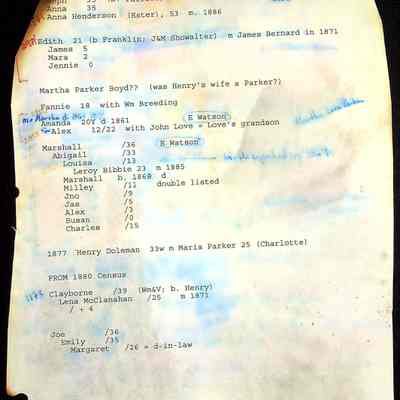 Anna 35
Anna Henderson (Kster), 53 m. 1886
Edith 21 (b Franklin; J&M Showalter) m James Bernard in 1871
James 5
Mara 2
Jennie 0
Martha Parker Boyd?? (was Henry's wife a Parker?)
Fannie 18 with Wm Breeding
Amanda 20Y d 1861 E Watson
Alex 12/22 with John Love = Love's grandson
Marshall /36 E Watson
Abigail /33
Louisa /13
Leroy Bibbie 23 m 1885
Marshall b. 1868 d
Milley /11 double listed
Jno /9
Jas /5
Alex /3
Susan /0
Charles /15
1877 Henry Doleman 33w m Maria Parker 25 (Charlotte)
FROM 1880 Census
Clayborne /39 (Wm&V; b. Henry)
Lena McClanahan /25 m 1871
/ + 4
Joe /36
Emily /35
Margaret /26 = d-in-law